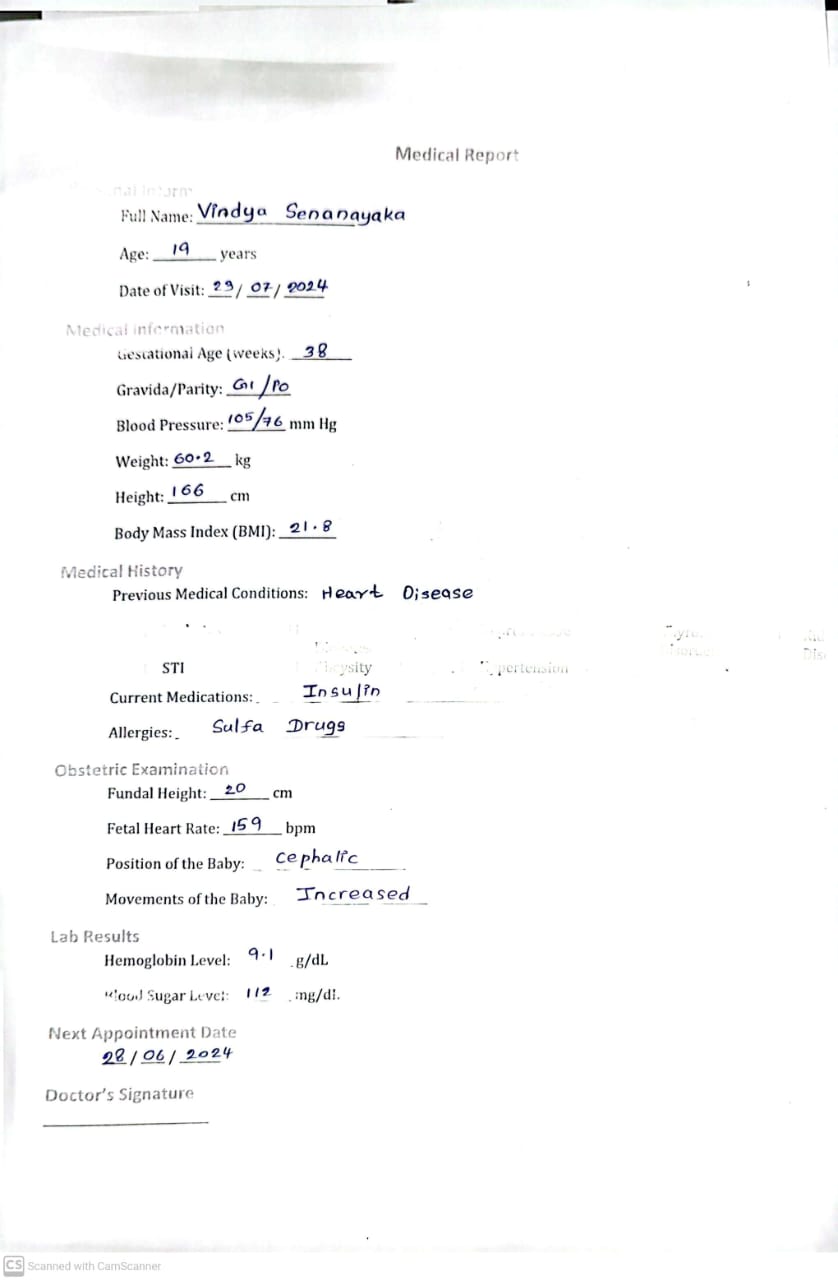 Medical Report
Full Name: Vindya Senanayaka
Age: 19 years
Date of Visit: 29/ 07/ 2024
Medical information
Gestational Age (weeks). 38
Gravida/Parity: G1/P0
Blood Pressure: 105/76 mm Hg
Weight: 60.2 kg
Height: 166 cm
Body Mass Index (BMI): 21.8
Medical History
Previous Medical Conditions: Heart Disease
STI pertension
Current Medications: Insulin
Allergies: Sulfa Drugs
Obstetric Examination
Fundal Height: 20 cm
Fetal Heart Rate: 159 bpm
Position of the Baby: Cephalic
Movements of the Baby: Increased
Lab Results
Hemoglobin Level: 9.1 g/dL
Blood Sugar Level: 112 mg/dL
Next Appointment Date
28/06/2024
Doctor's Signature
CS Scanned with CamScanner